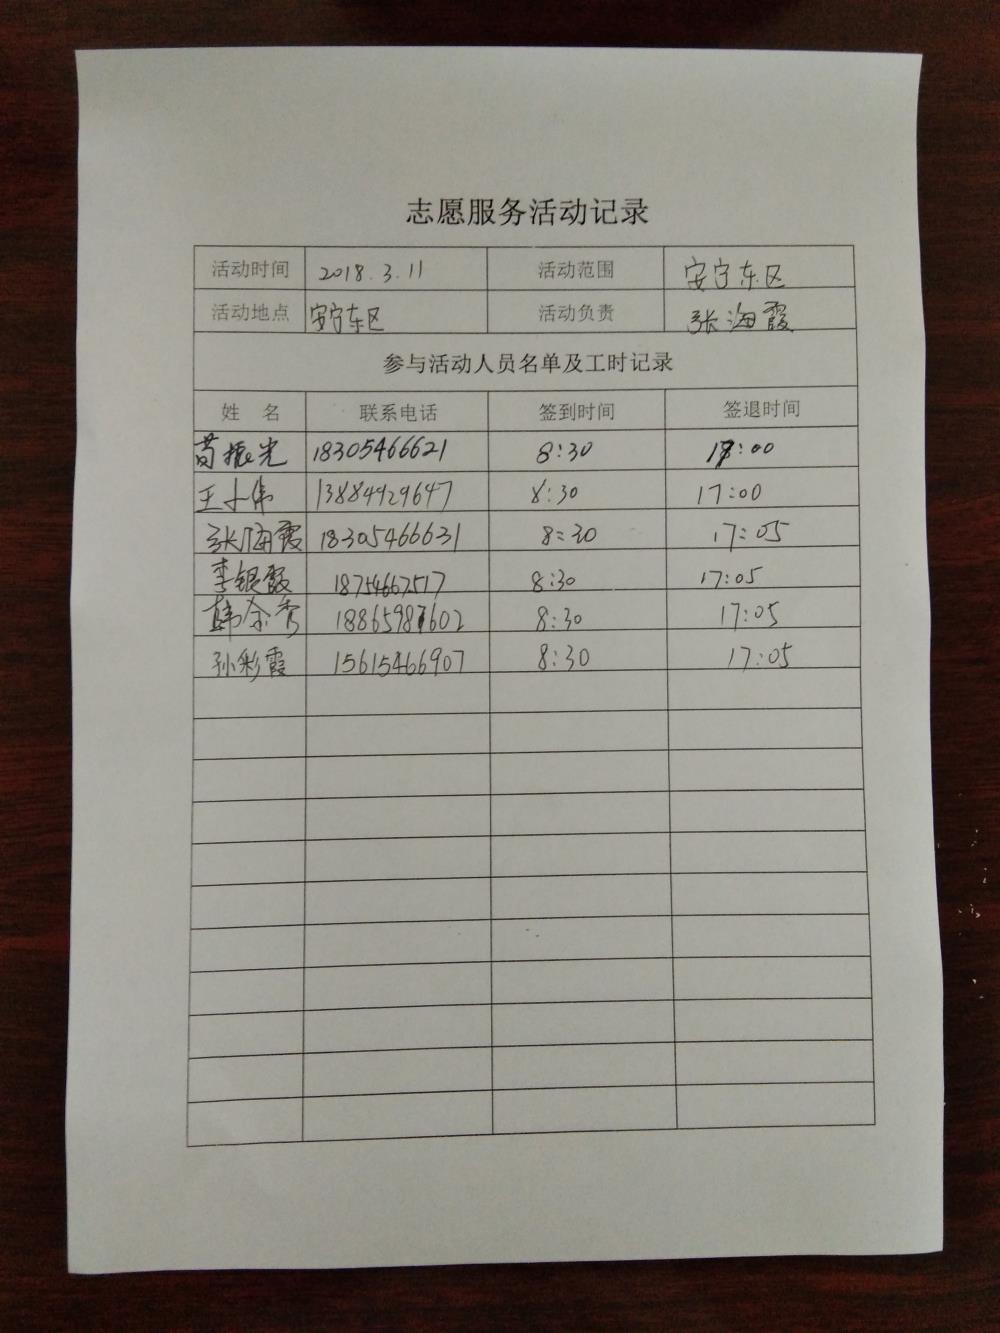 志愿服务活动记录
活动时间 2018.3.11 活动范围 安宁东区
活动地点 安宁东区 活动负责 张海霞
参与活动人员名单及工时记录
姓 名 联系电话 签到时间 签退时间
苟振光 18305466621 8:30 17:00
王小伟 13884929647 8:30 17:00
张海霞 18305466631 8:30 17:05
李银霞 18754667517 8:30 17:05
韩 秀 18865981602 8:30 17:05
孙彩霞 15615466907 8:30 17:05